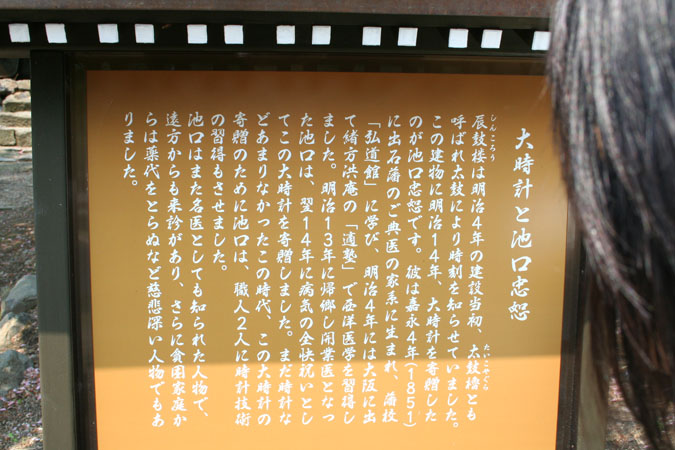 大時計と池口忠恕
辰鼓楼は明治4年の建設当初、太鼓櫓とも
しんころう
たいこやぐら
呼ばれ太鼓により時刻を知らせていました。
この建物に明治14年、大時計を寄贈した
のが池口忠恕です。彼は嘉永4年(1851)
に出石藩のご典医の家系に生まれ、藩校
「弘道館」に学び、明治4年には大阪に出
て緒方洪庵の「適塾」で西洋医学を習得し
ました。明治13年に帰郷し開業医となっ
た池口は、翌14年に病気の全快祝いとし
てこの大時計を寄贈しました。まだ時計な
どあまりなかったこの時代、この大時計の
寄贈のために池口は、職人2人に時計技術
の習得もさせました。
池口はまた名医としても知られた人物で、
遠方からも来診があり、さらに貧困家庭か
らは薬代をとらぬなど慈悲深い人物でもあ
りました。